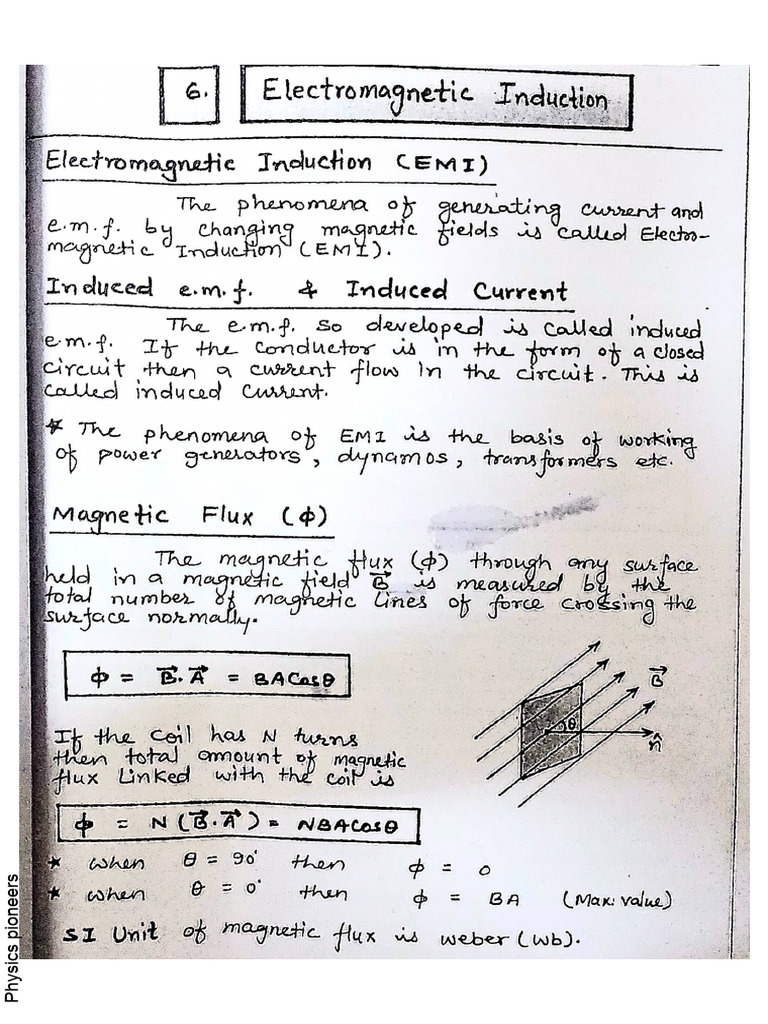 6. Electromagnetic Induction
Electromagnetic Induction (EMI)
The phenomena of generating current and
e.m.f. by changing magnetic fields is called Electro-
magnetic Induction (EMI).
Induced e.m.f. & Induced Current
The e.m.f. so developed is called induced
e.m.f. If the conductor is in the form of a closed
circuit then a current flow in the circuit. This is
called induced current.
* The phenomena of EMI is the basis of working
of power generators, dynamos, transformers etc.
Magnetic Flux (ϕ)
The magnetic flux (ϕ) through any surface
held in a magnetic field B⃗ is measured by the
total number of magnetic lines of force crossing the
surface normally.
ϕ = B⃗.A⃗ = BACosθ
B⃗
θ
n̂
If the coil has N turns
then total amount of magnetic
flux linked with the coil is
ϕ = N(B⃗.A⃗) = NBACosθ
* when θ = 90° then ϕ = 0
* when θ = 0° then ϕ = BA (Max. value)
SI Unit of magnetic flux is weber (wb).
Physics pioneers